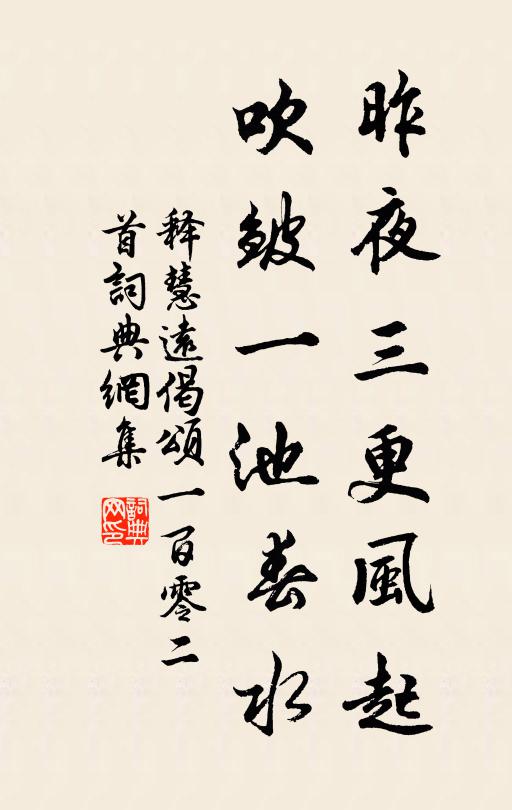 昨夜三更風起
吹皺一池春水
释慧遠偈頌一百零二
首詞典網集
詞典网印